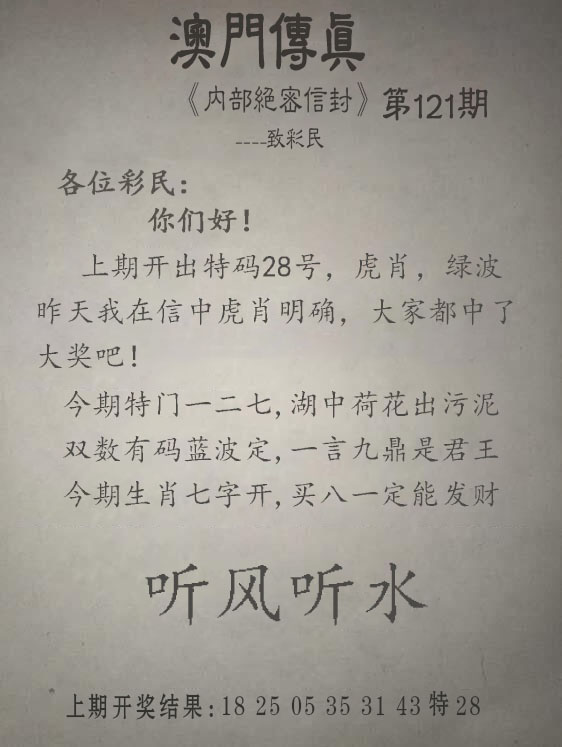 澳門傳眞
《内部絕密信封》第121期
----致彩民
各位彩民:
你们好!
上期开出特码28号，虎肖，绿波
昨天我在信中虎肖明确，大家都中了
大奖吧!
今期特门一二七,湖中荷花出污泥
双数有码蓝波定,一言九鼎是君王
今期生肖七字开,买八一定能发财
听风听水
上期开奖结果:18 25 05 35 31 43 特 28